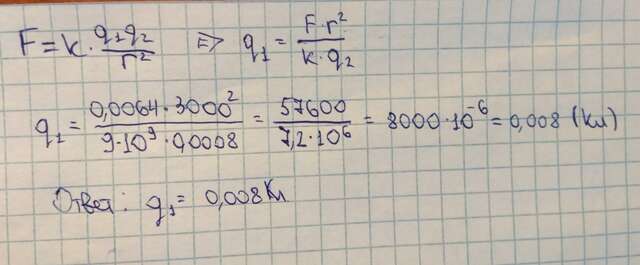 F = k · q₁q₂/r² => q₁ = F·r²/k·q₂
q₁ = 0,0064·3000²/9·10⁹·0,0008 = 57600/7,2·10⁶ = 8000·10⁻⁶ = 0,008 (Кл)
Ответ: q₁ = 0,008Кл